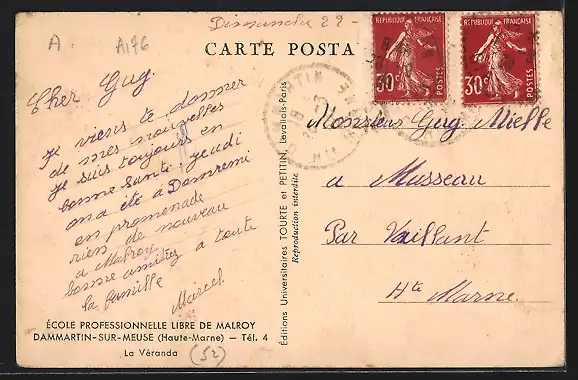 A A176
Dimanche 29-
CARTE POSTA
RÉPUBLIQUE FRANÇAISE
30c
RÉPUBLIQUE FRANÇAISE
30c
Cher Guy.
Je viens te donner
de mes nouvelles
Je suis toujours en
bonne santé. jeudi
on a été a Domremi
en promenade
rien de nouveau
a Malroy
bonne amitiez a toute
la famille
Marcel
Monsieur Guy Mielle
a Musseau
Par Vaillant
Hte Marne.
Éditions Universitaires TOURTE et PETITIN, Levallois-Paris
Reproduction interdite
ÉCOLE PROFESSIONNELLE LIBRE DE MALROY
DAMMARTIN-SUR-MEUSE (Haute-Marne) — Tél. 4
La Véranda (52)